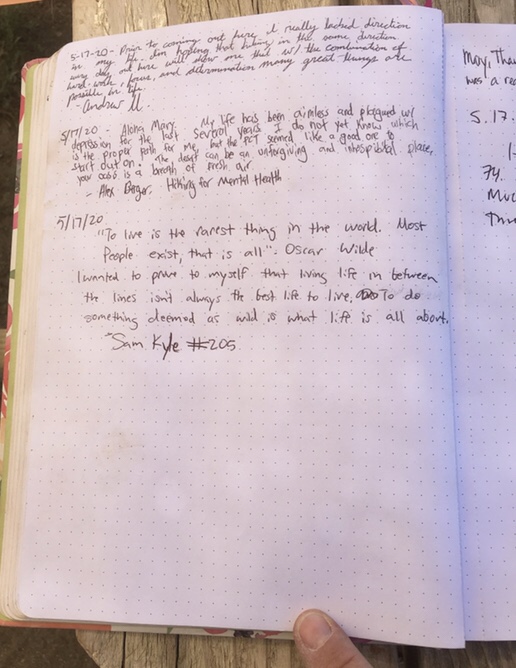 5-17-20- Prior to coming out here I really lacked direction
in my life. I'm hoping that hiking in the same direction
every day out here will show me that w/ the combination of
hard work, focus, and determination many great things are
possible in life.
- Andrew M.
5/17/20 - Aloha Mary. My life has been aimless and plagued w/
depression for the last several years I do not yet know which
is the proper path for me, but the PCT seemed like a good one to
start out on. The desert can be an unforgiving and inhospitable place,
your oasis is a breath of fresh air
- Alex Berger, Hiking for Mental Health
5/17/20
"To live is the rarest thing in the world. Most
People exist, that is all". Oscar Wilde
I wanted to prove to myself that living life in between
the lines isn't always the best life to live. To do
something deemed as wild is what life is all about.
- Sam Kyle #205
Mary, Than
was a rea
5.17.
74.
Muc